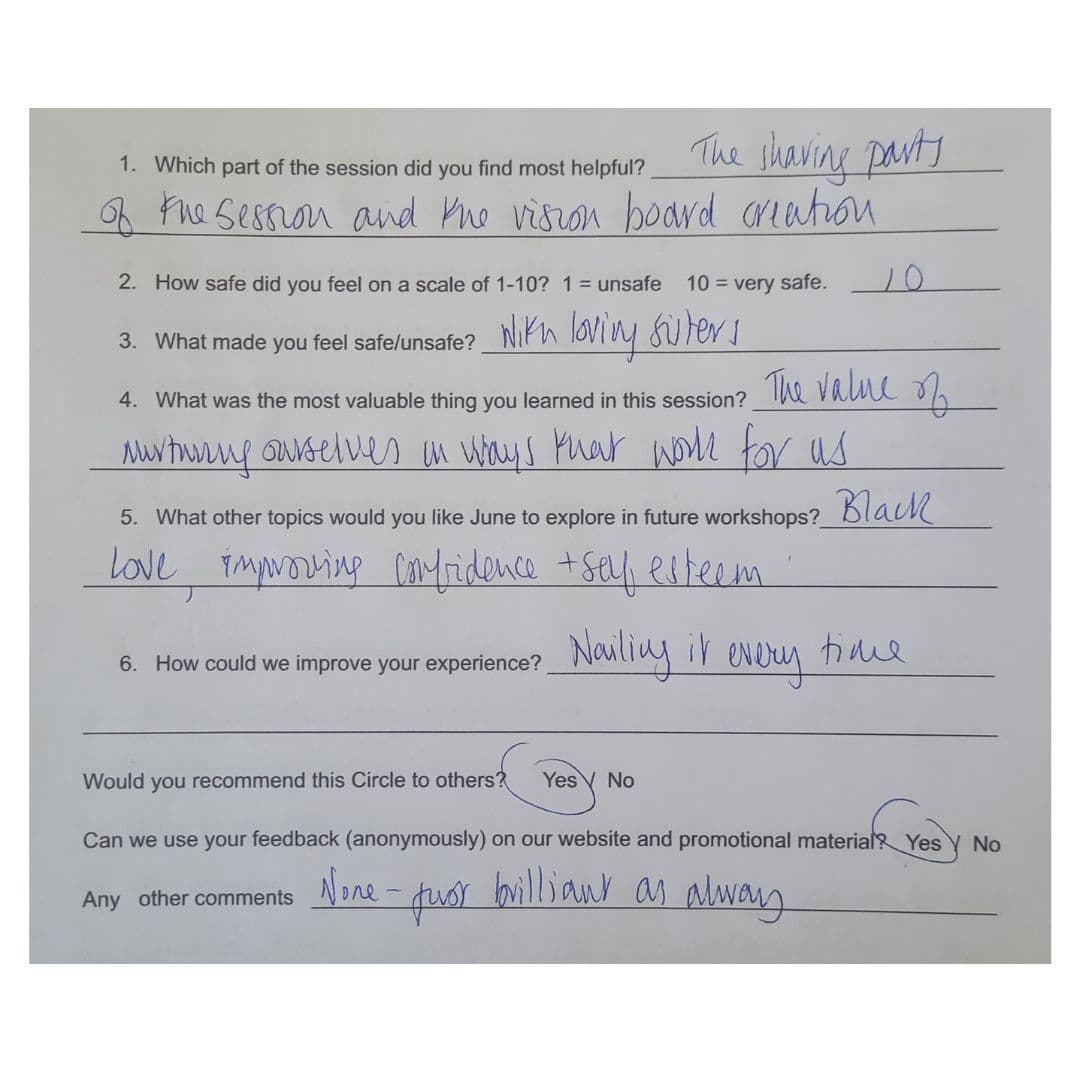 1. Which part of the session did you find most helpful? The sharing parts
of the session and the vision board creation
2. How safe did you feel on a scale of 1-10? 1 = unsafe 10 = very safe. 10
3. What made you feel safe/unsafe? With loving sisters
4. What was the most valuable thing you learned in this session? The value of
nurturing ourselves in ways that work for us
5. What other topics would you like June to explore in future workshops? Black
love, improving confidence + self esteem
6. How could we improve your experience? Nailing it every time
Would you recommend this Circle to others? Yes / No
Can we use your feedback (anonymously) on our website and promotional material? Yes / No
Any other comments None - just brilliant as always